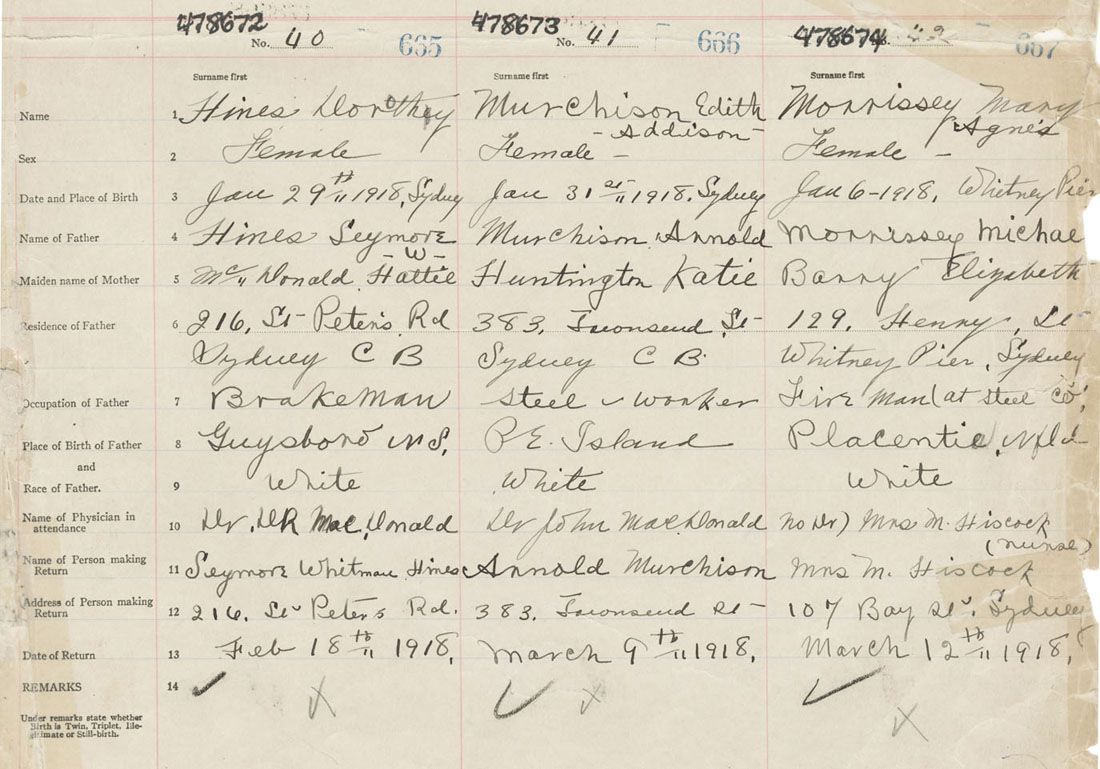 478672 478673 478674
No. 40 665 No. 41 666 No. 667
Surname first Surname first Surname first
Name 1 Hines Dorothy Murchison Edith Morrissey Mary
- Addison - Agnes
Sex 2 Female Female - Female -
Date and Place of Birth 3 Jan 29th 1918, Sydney Jan 31st 1918, Sydney Jan 6-1918, Whitney Pier
Name of Father 4 Hines Seymore Murchison, Arnold Morrissey Michae
- W -
Maiden name of Mother 5 Mc Donald Hattie Huntington Katie Barry Elizabeth
Residence of Father 6 216, St Peter's Rd 383, Townsend St- 129, Henry, St
Sydney C B Sydney C B. Whitney Pier, Sydney
Occupation of Father 7 Brakeman Steel - worker Fire Man (at Steel Co,
Place of Birth of Father 8 Guysboro N S, P E. Island Placentia, Nfld
and
Race of Father. 9 White White White
Name of Physician in
attendance 10 Dr. DR MacDonald Dr John MacDonald no Dr) Mrs M. Hiscock
(nurse)
Name of Person making
Return 11 Seymore Whitman Hines Arnold Murchison Mrs M. Hiscock
Address of Person making
Return 12 216, St Peter's Rd. 383, Townsend St- 107 Bay St, Sydney
Date of Return 13 Feb 18th 1918, March 9th 1918, March 12th 1918,
REMARKS 14
Under remarks state whether
Birth is Twin, Triplet, Ille-
gitimate or Still-birth.